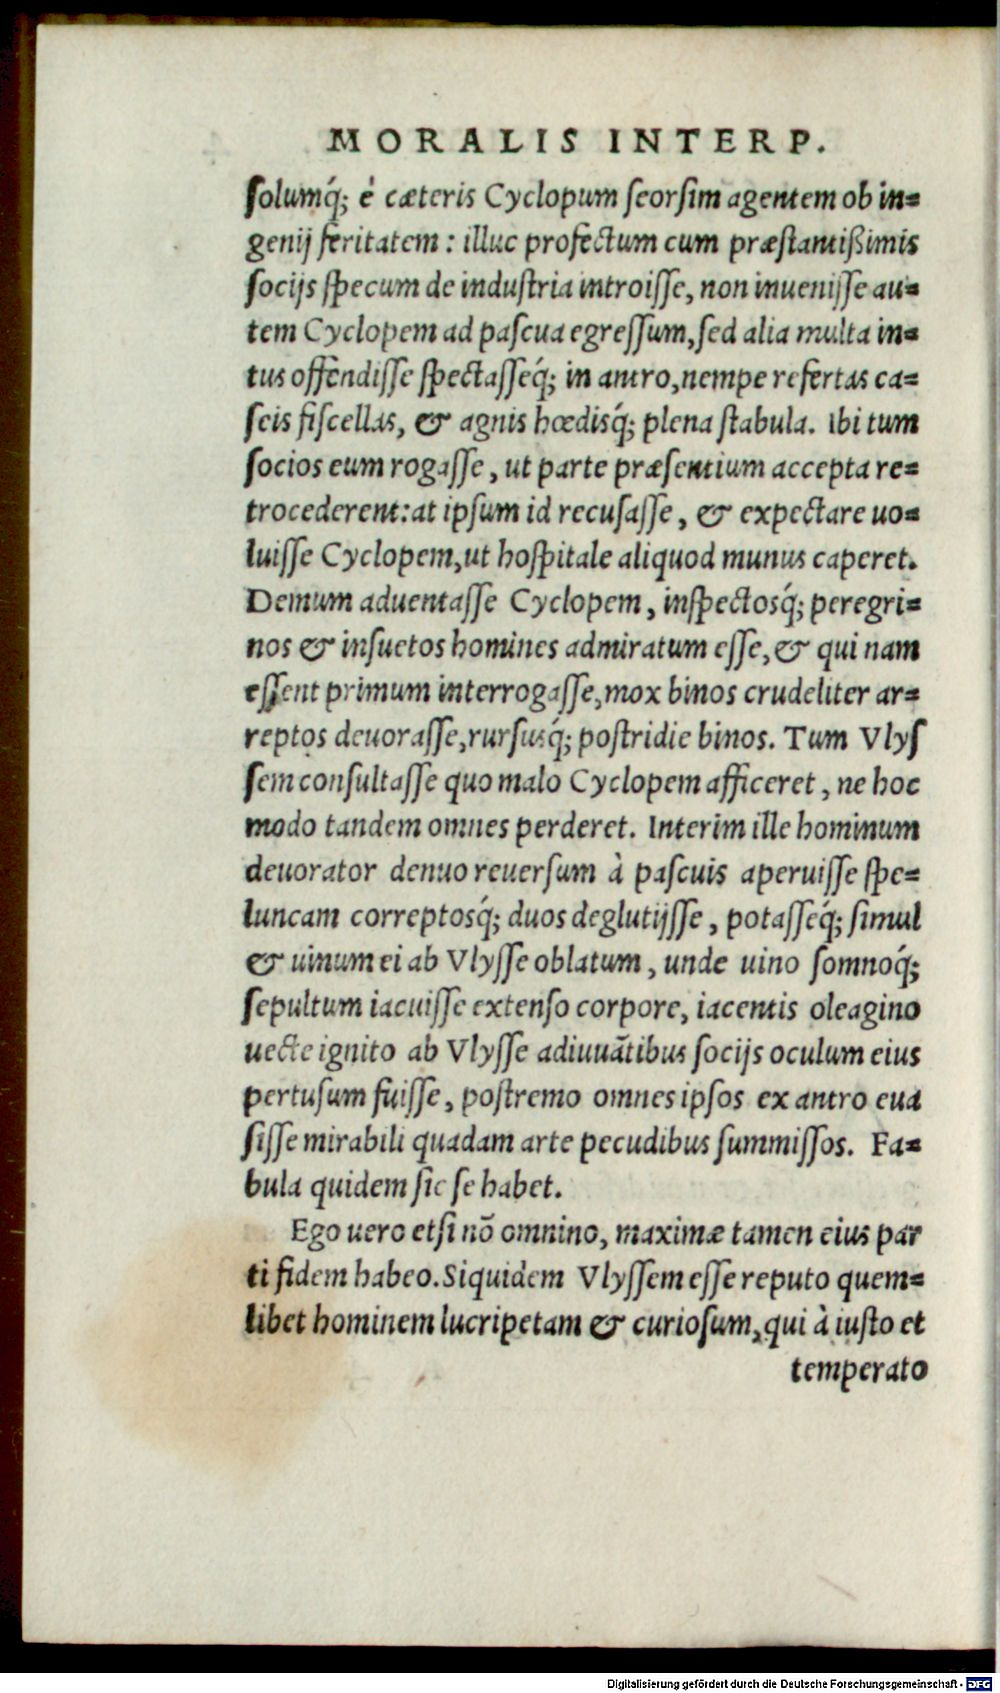 MORALIS INTERP.
ſolumq́; è cæteris Cyclopum ſeorſim agentem ob in=
genij feritatem: illuc profectum cum præſtantißimis
ſocijs ſpecum de induſtria introiſſe, non inueniſſe au=
tem Cyclopem ad paſcua egreſſum, ſed alia multa in=
tus offendiſſe ſpectaſſeq́; in antro, nempe refertas ca=
ſeis fiſcellas, & agnis hœdisq́; plena ſtabula. Ibi tum
ſocios eum rogaſſe, ut parte præſentium accepta re=
trocederent: at ipſum id recuſaſſe, & expectare uo=
luiſſe Cyclopem, ut hoſpitale aliquod munus caperet.
Demum aduentaſſe Cyclopem, inſpectosq́; peregri=
nos & inſuetos homines admiratum eſſe, & qui nam
eſſent primum interrogaſſe, mox binos crudeliter ar=
reptos deuoraſſe, rurſusq́; poſtridie binos. Tum Vlyſ
ſem conſultaſſe quo malo Cyclopem afficeret, ne hoc
modo tandem omnes perderet. Interim ille hominum
deuorator denuo reuerſum à paſcuis aperuiſſe ſpe=
luncam correptosq́; duos deglutijſſe, potaſſeq́; ſimul
& uinum ei ab Vlyſſe oblatum, unde uino ſomnoq́;
ſepultum iacuiſſe extenſo corpore, iacentis oleagino
uecte ignito ab Vlyſſe adiuuãtibus ſocijs oculum eius
pertuſum fuiſſe, poſtremo omnes ipſos ex antro eua
ſiſſe mirabili quadam arte pecudibus ſummiſſos. Fa=
bula quidem ſic ſe habet.
Ego uero etſi nõ omnino, maximæ tamen eius par
ti fidem habeo. Siquidem Vlyſſem eſſe reputo quem=
libet hominem lucripetam & curioſum, qui à iuſto et
temperato
Digitalisierung gefördert durch die Deutsche Forschungsgemeinschaft - DFG